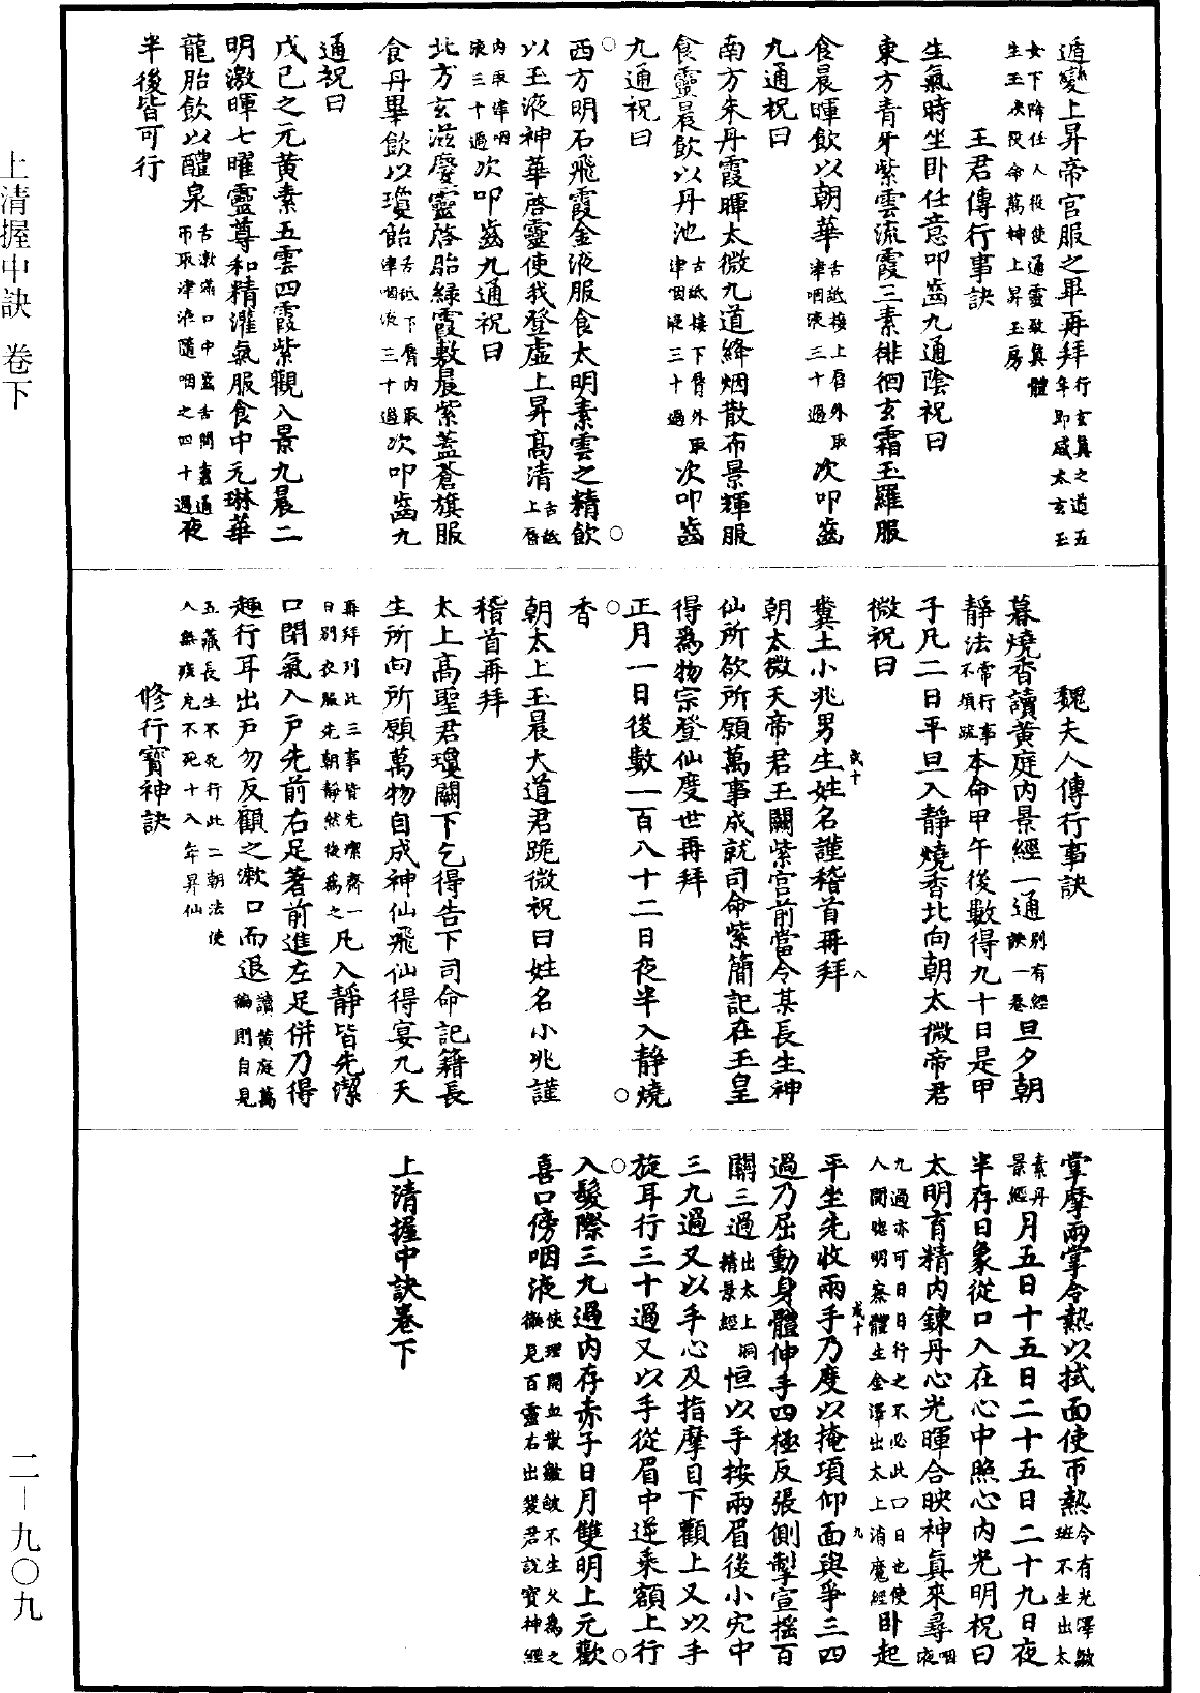 遁變上昇帝宮服之畢再拜行玄真之道五年即感太玄玉
女下降任人役使通靈致真體生玉映役命萬神上昇玉房
王君傳行事訣
生氣時坐卧任意叩齒九通陰祝曰
東方青牙紫雲流霞三素徘徊玄霜玉羅服
食晨暉飲以朝華舌舐接上脣外取津咽液三十過次叩齒
九通祝曰
南方朱丹霞暉太微九道絳烟散布景輝服
食靈晨飲以丹池舌舐接下脣外取津咽液三十過次叩齒
九通祝曰
西方明石飛霞金液服食太明素雲之精飲
以玉液神華啓靈使我登虛上昇高清舌舐上脣
內取津咽液三十過次叩齒九通祝曰
北方玄滋慶靈啓胎緑霞敷晨紫蓋蒼旗服
食丹畢飲以瓊飴舌舐下脣內取津咽液三十過次叩齒九
通祝曰
戊己之元黄素五雲四霞紫觀八景九晨二
明激暉七曜靈尊和精灌氣服食中元琳華
龍胎飲以醴泉舌漱滿口中靈舌間表通帀取津液隨咽之四十過夜
半後皆可行
魏夫人傳行事訣
暮燒香讀黄庭內景經一通別有經訣一卷旦夕朝
靜法常行事不須疏本命甲午後數得九十日是甲
子凡二日平旦入靜燒香北向朝太微帝君
微祝曰
糞土小兆男生姓名謹稽首再拜
朝太微天帝君玉闕紫宮前當令某長生神
仙所欲所願萬事成就司命紫簡記在玉皇
得爲物宗登仙度世再拜
正月一日後數一百八十二日夜半入靜燒
香
朝太上玉晨大道君跪微祝曰姓名小兆謹
稽首再拜
太上高聖君瓊闕下乞得告下司命記籍長
生所向所願萬物自成神仙飛仙得宴九天
再拜列此三事皆先潔齋一日別衣服先朝靜然後爲之凡入靜皆先潔
口閉氣入戶先前右足著前進左足併乃得
趣行耳出戶勿反顧之漱口而退讀黄庭萬徧則自見
五藏長生不死行此二朝法使人無疾兊不死十八年昇仙
修行寳神訣
掌摩兩掌令熱以拭面使帀熱令有光澤皺班不生出太
素丹景經月五日十五日二十五日二十九日夜
半存日象從口入在心中照心內光明祝曰
太明育精內鍊丹心光暉合映神真來尋咽液
九過亦可日日行之不必此口日也使人聞聰明察體生金澤出太上消魔經卧起
平坐先收兩手乃度以掩項仰面與爭三四
過乃屈動身體伸手四極反張側掣宣摇百
關三過出太上洞精景經恒以手按兩眉後小穴中
三九過又以手心及指摩目下顴上又以手
旋耳行三十過又以手從眉中逆乘額上行
入髮際三九過內存赤子日月雙明上元歡
喜口傍咽液使理開血散皺皴不生久爲之徹見百靈右出裴君説寳神經
上清握中訣卷下
上清握中訣 卷下
二—九〇九